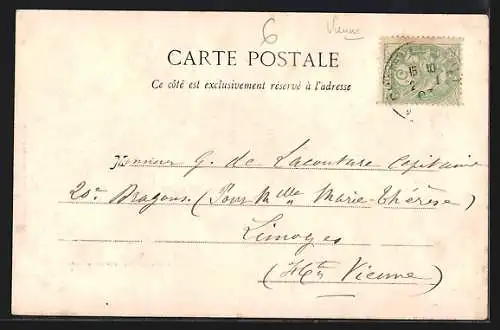 6
Vienne
CARTE POSTALE
Ce côté est exclusivement réservé à l'adresse
15 10
Monsieur G. de Lacouture Capitaine
20e Dragons (Pour Mlle Marie-Thérèse)
Limoges
(Hte Vienne)